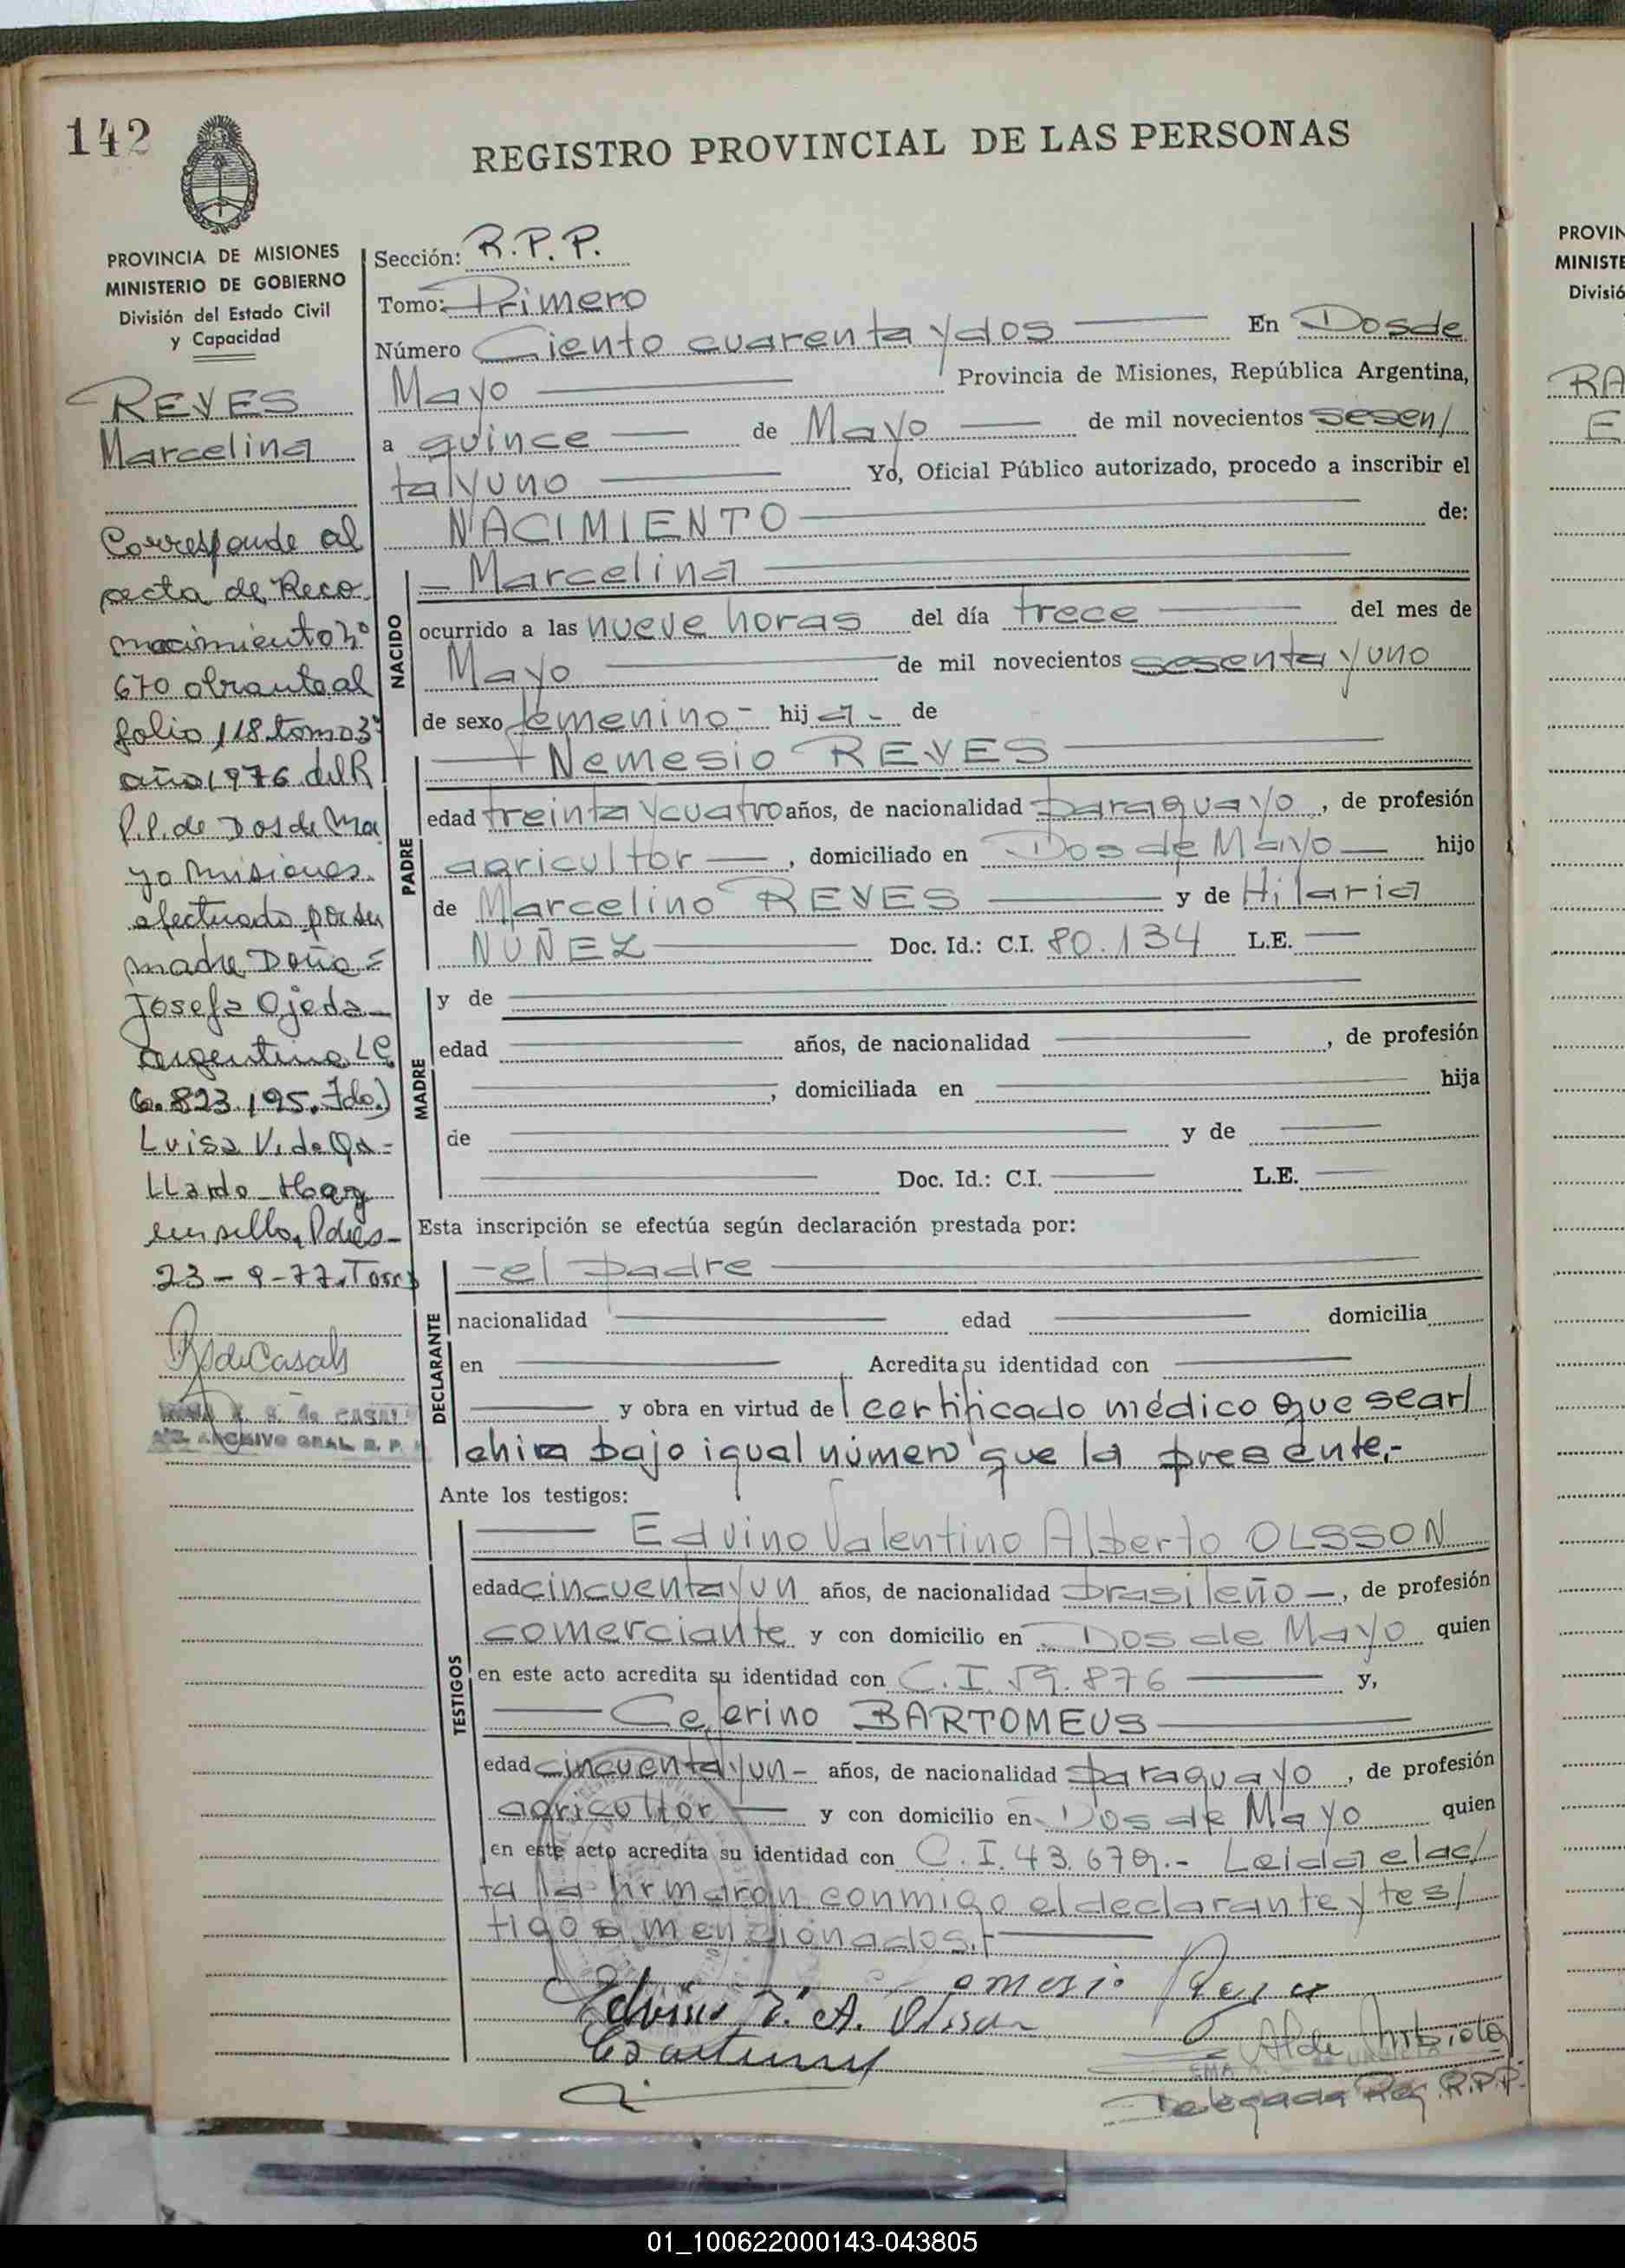 142
REGISTRO PROVINCIAL DE LAS PERSONAS
PROVINCIA DE MISIONES
MINISTERIO DE GOBIERNO
División del Estado Civil
y Capacidad
REYES
Marcelina
Corresponde al
acta de Reco
nocimiento Nº
670 obrante al
folio 118 tomo 3º
año 1976 del R
P.P. de Dos de Ma
yo Misiones
efectuado por su
madre Doña =
Josefa Ojeda
argentina LC
6.823.195. Fdo.)
Luisa V. de Ga-
LLardo - Hay
un sello. Pdas -
23-9-77. Torres
R S de Casals
R. S. de CASALS
ARCHIVO GRAL R. P. P.
Sección: R.P.P.
Tomo: Primero
Número Ciento cuarenta y dos En Dos de
Mayo Provincia de Misiones, República Argentina,
a quince de Mayo de mil novecientos sesen/
ta y uno Yo, Oficial Público autorizado, procedo a inscribir el
NACIMIENTO de:
NACIDO
- Marcelina
ocurrido a las nueve horas del día trece del mes de
Mayo de mil novecientos sesenta y uno
de sexo femenino - hija - de
PADRE
Nemesio REYES
edad treinta y cuatro años, de nacionalidad paraguayo, de profesión
agricultor -, domiciliado en Dos de Mayo - hijo
de Marcelino REYES y de Hilaria
NUÑEZ Doc. Id.: C.I. 80.134 L.E.
MADRE
y de
edad años, de nacionalidad , de profesión
, domiciliada en hija
de y de
Doc. Id.: C.I. L.E.
Esta inscripción se efectúa según declaración prestada por:
DECLARANTE
- el padre
nacionalidad edad domicilia
en Acredita su identidad con
y obra en virtud del certificado médico que se ar/
chiva bajo igual número que la presente.-
Ante los testigos:
TESTIGOS
Edvino Valentino Alberto OLSSON
edad cincuenta y un años, de nacionalidad brasileño -, de profesión
comerciante y con domicilio en Dos de Mayo quien
en este acto acredita su identidad con C.I. 59.876 y,
Ceferino BARTOMEUS
edad cincuenta y un - años, de nacionalidad paraguayo, de profesión
agricultor - y con domicilio en Dos de Mayo quien
en este acto acredita su identidad con C.I. 43.679.- Leida el ac/
ta la firmaron conmigo el declarante y tes/
tigos mencionados.-
Edvino V. A. Olsson
Delegada Reg. R.P.P.
PROVIN
MINISTE
Divisió
RA
E
01_100622000143-043805